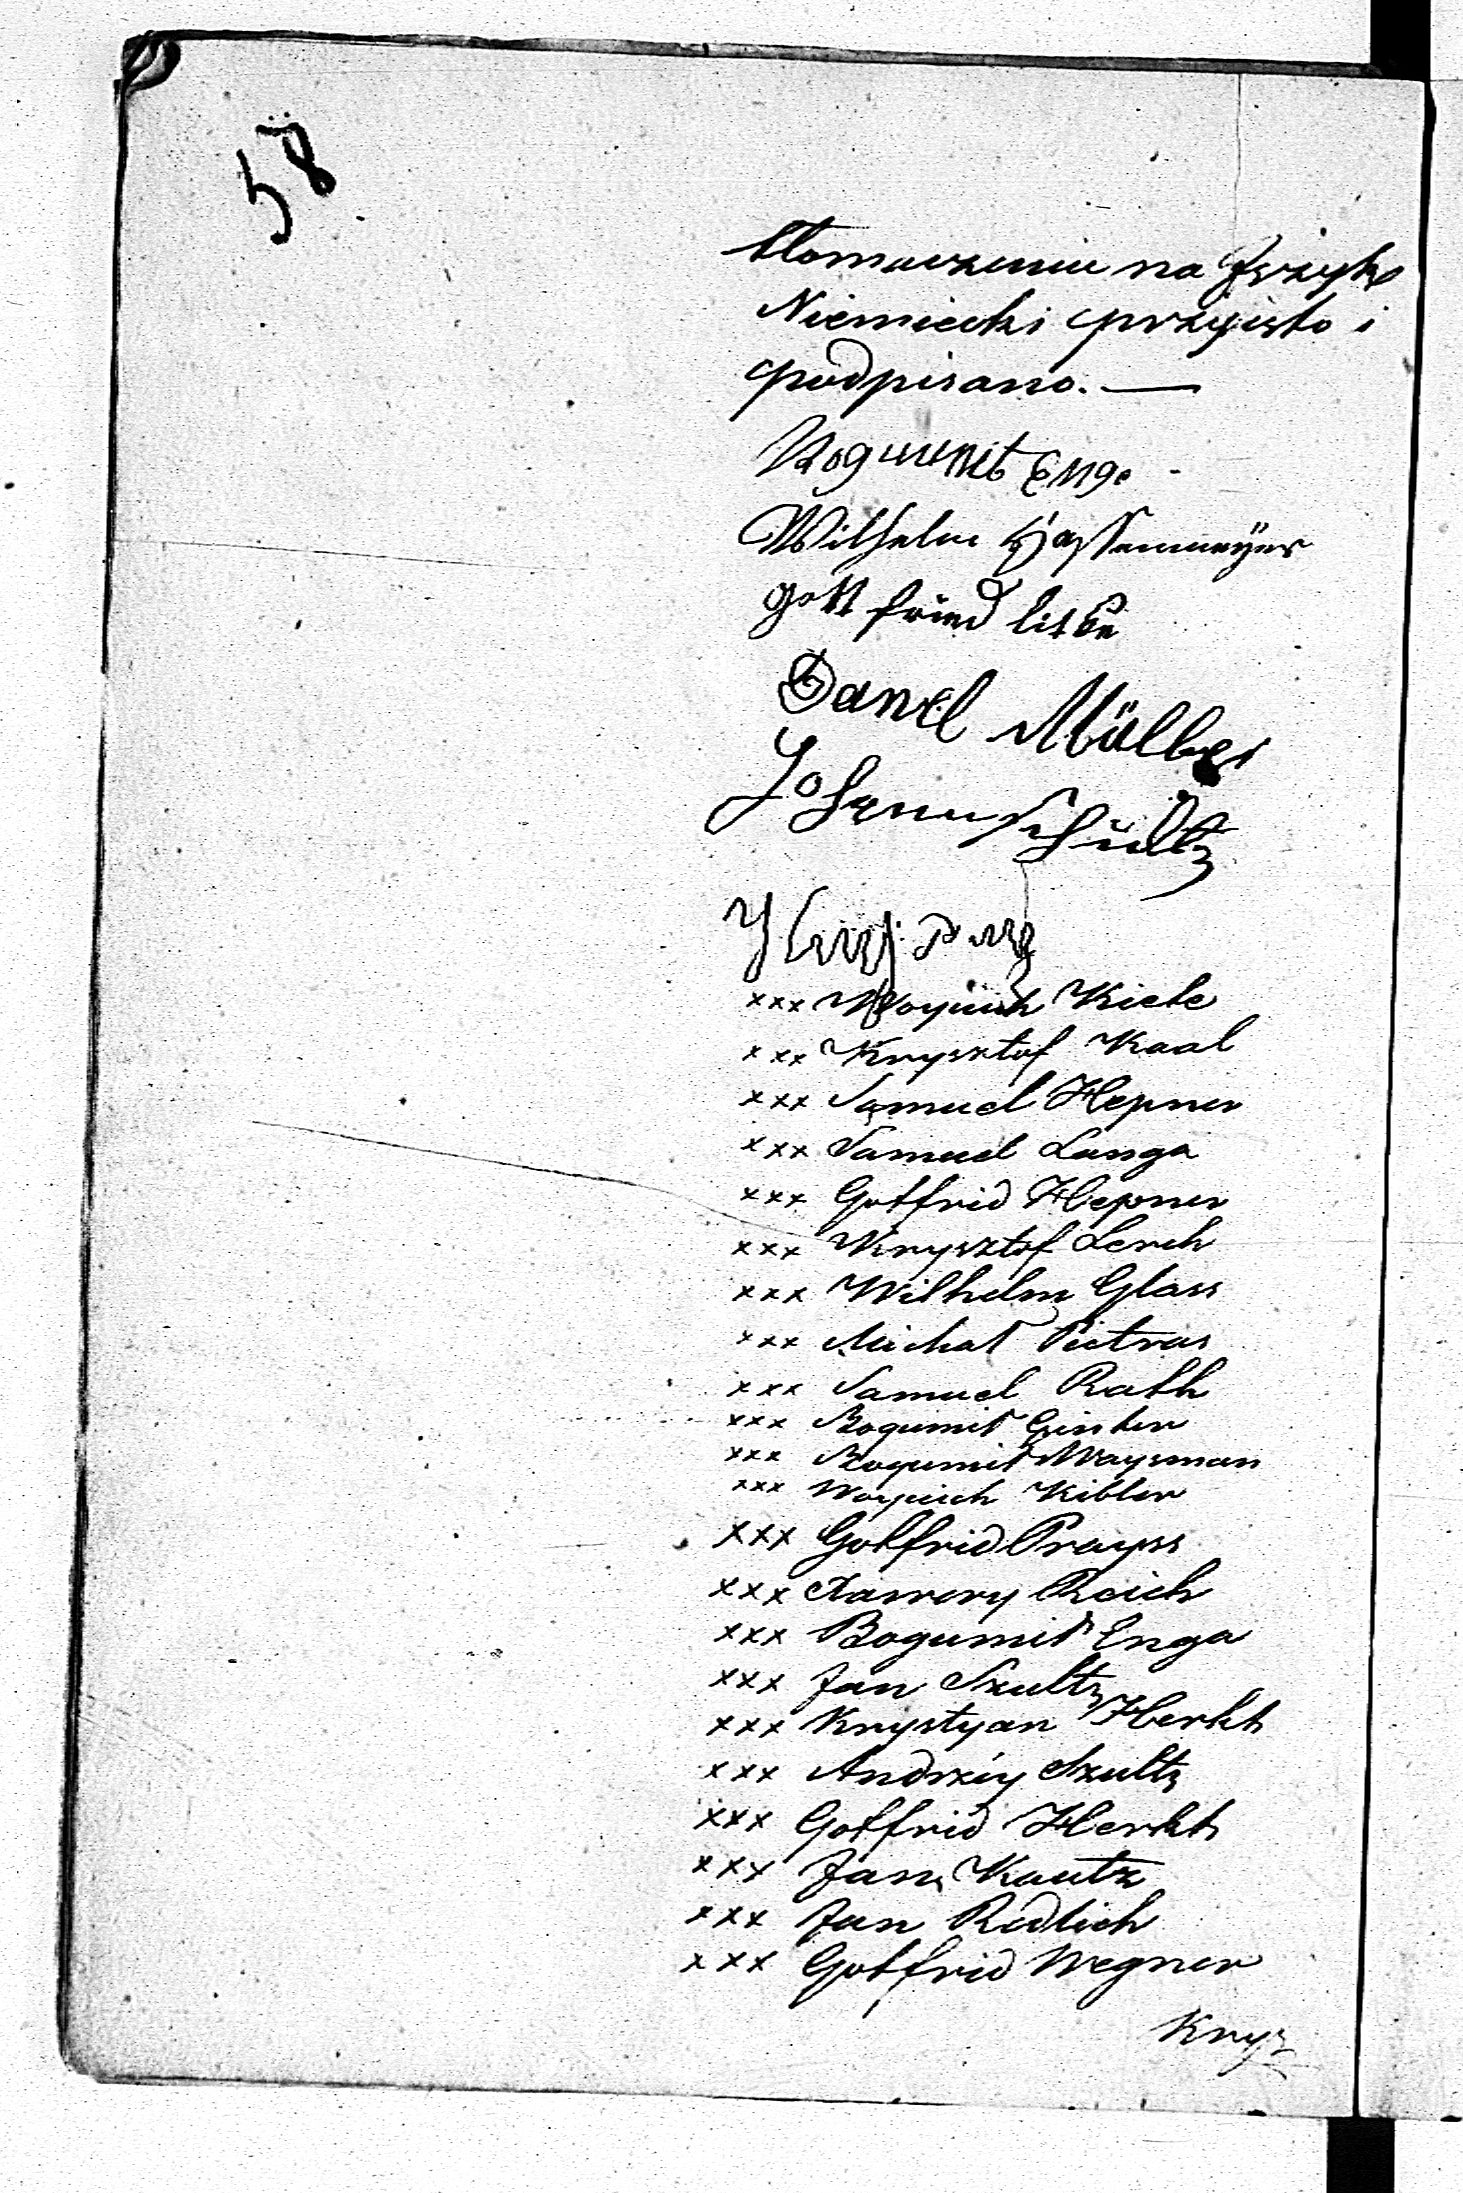 58
tłomaczeniu na Język
Niemiecki przyięto i
podpisano. —
Bogumił Enge
Wilhelm Hassenmeyer
gottfried litke
Daniel Müller
Johann Schultz
xxx Woyciech Kiele
xxx Krysztof Kaal
xxx Samuel Hepner
xxx Samuel Langa
xxx Gotfrid Hepner
xxx Krysztof Lerch
xxx Wilhelm Glass
xxx Michał Pietras
xxx Samuel Rath
xxx Bogumił Ginter
xxx Bogumił Waysman
xxx Woyciech Kibler
xxx Gotfrid Prayss
xxx Xawery Reich
xxx Bogumił Enga
xxx Jan Szultz
xxx Krystyan Herkt
xxx Andrzéy Szultz
xxx Gotfrid Herkt
xxx Jan Kautz
xxx Jan Redlich
xxx Gotfrid Wegner
Krysz